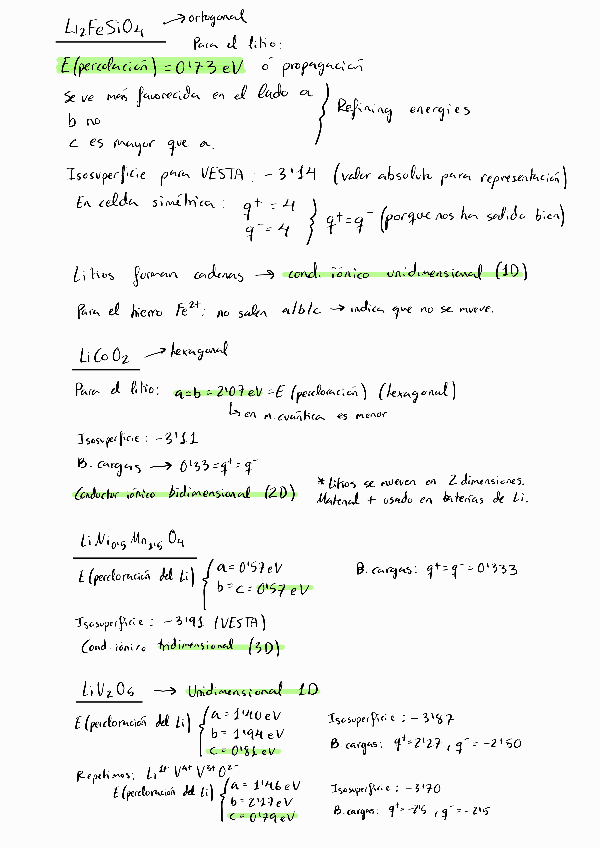 Li2FeSiO4 → ortogonal
Para el litio:
E(percolación) = 0'73 eV ó propagación
Se ve más favorecida en el lado a
b no
c es mayor que a.
} Refining energies
Isosuperficie para VESTA: -3'14 (valor absoluto para representación)
En celda simétrica: q+ = 4
q- = 4
} q+ = q- (porque nos ha salido bien)
Litios forman cadenas → cond. iónico unidimensional (1D)
Para el hierro Fe2+: no salen a/b/c → indica que no se mueve.
LiCoO2 → hexagonal
Para el litio: a=b=2'07 eV = E (percloración) (hexagonal)
↳ en m.cuántica es menor
Isosuperficie: -3'11
B. cargas → 0'33 = q+ = q-
Conductor iónico bidimensional (2D)
* Litios se mueven en 2 dimensiones.
Material + usado en baterías de Li.
LiNi0'5Mn1'5O4
E(percloración del Li) { a = 0'57 eV
b = c = 0'57 eV
B. cargas: q+ = q- = 0'333
Isosuperficie: -3'91 (VESTA)
Cond. iónico tridimensional (3D)
LiV2O5 → Unidimensional 1D
E(percloración del Li) { a = 1'40 eV
b = 1'94 eV
c = 0'81 eV
Isosuperficie: -3'87
B cargas: q+ = 2'27, q- = -2'50
Repetimos: Li1+ V4+ V5+ O2-
E(percloración del Li) { a = 1'46 eV
b = 2'17 eV
c = 0'79 eV
Isosuperficie: -3'70
B. cargas: q+ = -2'5, q- = -2'5